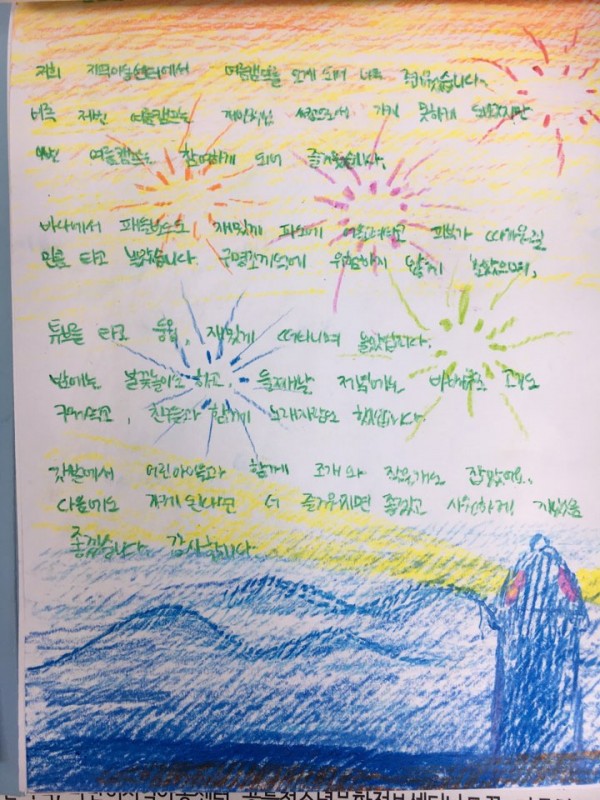 저희 지역아동센터에서 여름캠프를 오게 되어 너무 즐거웠습니다.
저번 여름캠프는 개인적인 사정으로서 가지 못하게 되었지만
이번 여름캠프는 참여하게 되어 즐거웠습니다.
바다에서 재밌게 파도에 피부가 따가운줄
타고 놀았습니다. 구명조끼덕에 위험하지 않게 놀았으며,
튜브를 타고 둥둥, 재밌게 떠다니며 놀았답니다.
밤에는 불꽃놀이도 하고, 둘째날 저녁에는 바베큐로 고기도
구워먹고, 친구들과 함께 노래자랑도 했습니다.
갯벌에서 어린아이들과 함께 조개와 작은게도 잡았어요.
다음에도 오게된다면 더 즐거우지면 좋겠고 시원하게 지냈음
좋겠습니다. 감사합니다.